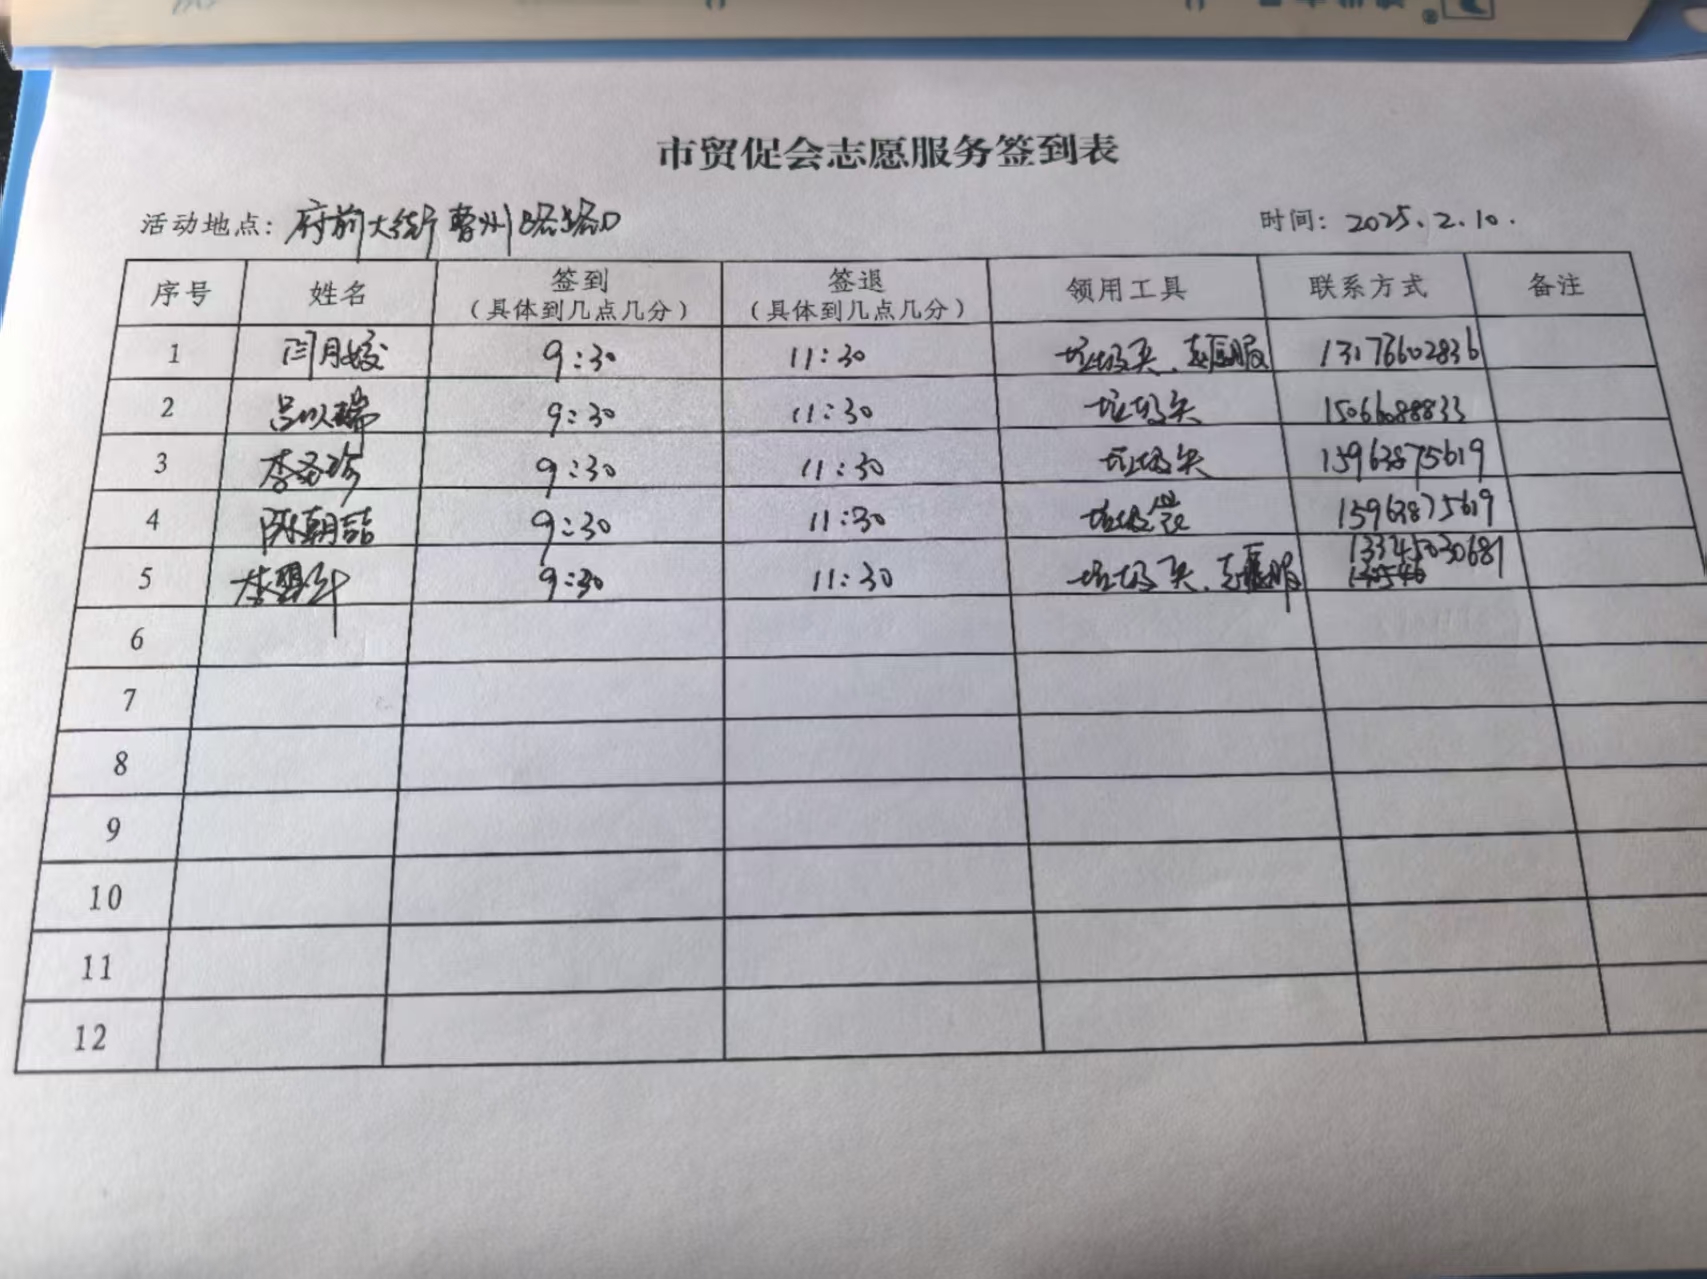 市贸促会志愿服务签到表
活动地点: 府前大街曹州路路口 时间: 2025.2.10.
序号 姓名 签到（具体到几点几分） 签退（具体到几点几分） 领用工具 联系方式 备注
1 闫月姣 9:30 11:30 垃圾夹、志愿服 13176602836
2 吕以瑞 9:30 11:30 垃圾夹 15066088833
3 9:30 11:30 垃圾夹 15963875619
4 陈朝喆 9:30 11:30 垃圾袋 15963875619
5 9:30 11:30 垃圾夹、志愿服
6
7
8
9
10
11
12